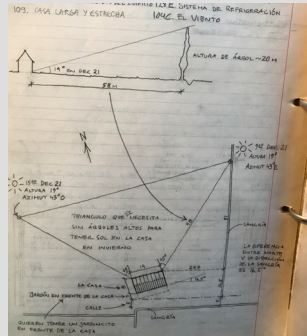 SISTEMA DE REFRIGERACIÓN
109. CASA LARGA Y ESTRECHA
EL VIENTO
ALTURA DE ÁRBOL ~20 M
19° EN DEC 21
58 M
N
DEC 21
ALTURA 19°
AZIMUT 43°
DEC 21
ALTURA 19°
AZIMUT 43°O
TRIANGULO QUE NECESITA
SIN ÁRBOLES ALTOS PARA
TENER SOL EN LA CASA
EN INVIERNO
SANGRÍA
LA DIFERENCIA
ENTRE NORTE
Y LA DIRECCIÓN
DE LA SANGRÍA
ES 16.5°
16.5°
LA CASA
JARDÍN EN FRENTE DE LA CASA
CALLE
SANGRÍA
QUIEREN TENER UN JARDINCITO
EN FRENTE DE LA CASA